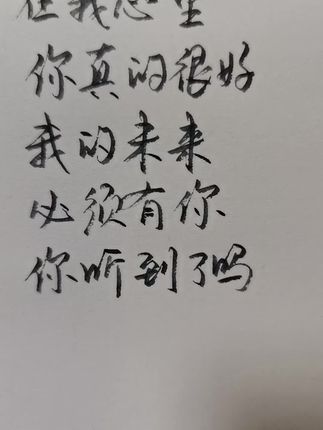 但我心里
你真的很好
我的未来
必须有你
你听到了吗